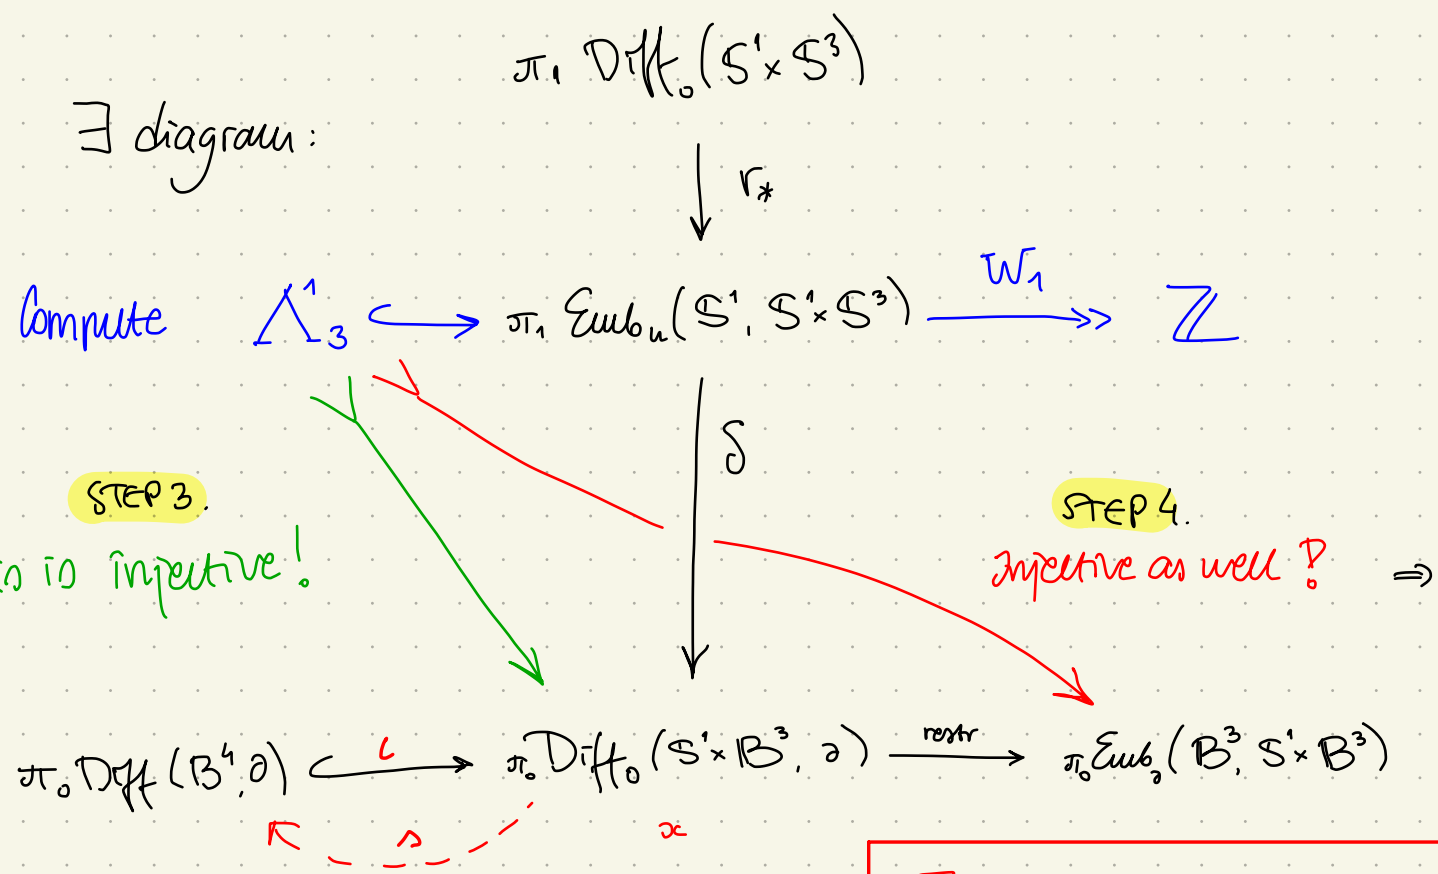 π₁ Diff₀(S¹×S³)
∃ diagram:
r_*
Compute Λ¹₃ ↪ π₁ Emb_u(S¹, S¹×S³) W₁ ↠ ℤ
δ
STEP 3. STEP 4.
is injective! Injective as well? ⇒
π₀ Diff(B⁴,∂) ↪ ι π₀ Diff₀(S¹×B³, ∂) restr → π₀ Emb_∂(B³, S¹×B³)
s x